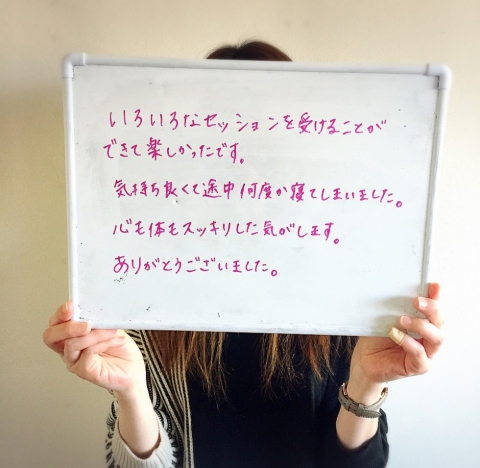 いろいろなセッションを受けることが
できて楽しかったです。
気持ち良くて途中何度か寝てしまいました。
心も体もスッキリした気がします。
ありがとうございました。